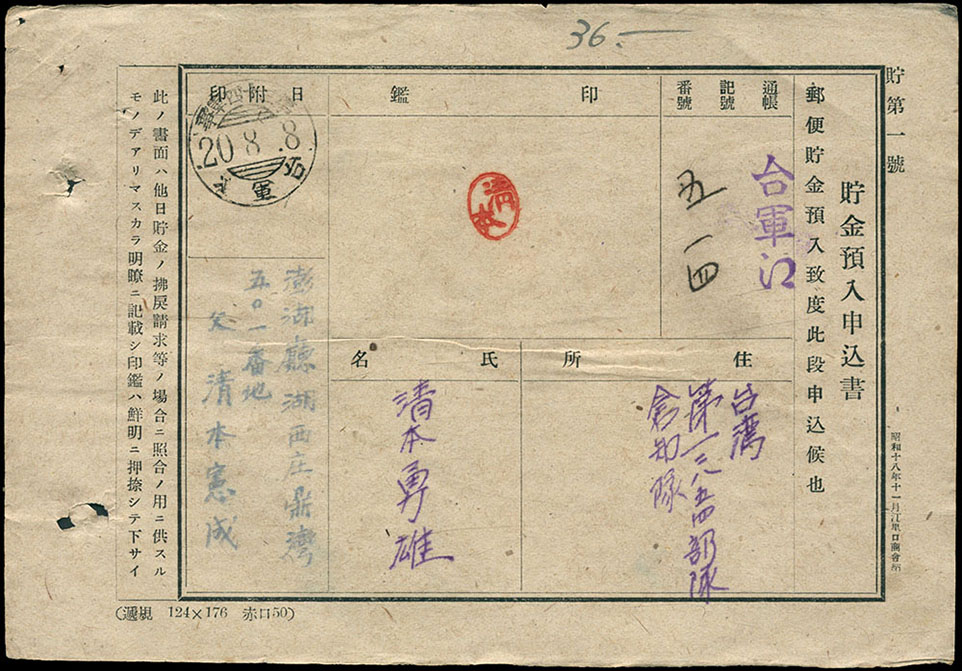 36.—
貯第一號
貯金預入申込書
郵便貯金預入致度此段申込候也
通帳
記號
番號
台軍に
五一四
印鑑
清本
日附印
20.8.8
台軍
住所
台灣
第一三八五四部隊
倉知隊
氏名
清本勇雄
澎湖廳湖西庄鼎灣
五〇一番地
父 清本憲成
此ノ書面ハ他日貯金ノ拂戻請求等ノ場合ニ照合ノ用ニ供スル
モノデアリマスカラ明瞭ニ記載シ印鑑ハ鮮明ニ押捺シテ下サイ
昭和十八年十一月江里口商會納
(遞規 124×176 赤口50)